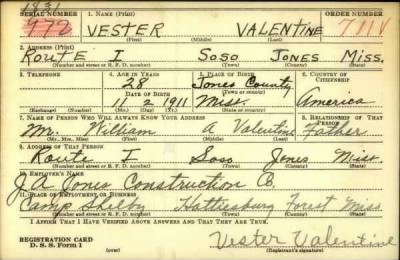 1831
SERIAL NUMBER 1. NAME (Print) ORDER NUMBER
972 VESTER VALENTINE 711V
(First) (Middle) (Last)
2. ADDRESS (Print)
ROUTE I SOSO JONES MISS.
(Number and street or R. F. D. number) (Town) (County) (State)
3. TELEPHONE 4. AGE IN YEARS 5. PLACE OF BIRTH 6. COUNTRY OF CITIZENSHIP
28 Jones County
DATE OF BIRTH (Town or county)
11 2 1911 Miss. America
(Exchange) (Number) (Mo.) (Day) (Yr.) (State or country)
7. NAME OF PERSON WHO WILL ALWAYS KNOW YOUR ADDRESS 8. RELATIONSHIP OF THAT PERSON
Mr. William A Valentine Father
(Mr., Mrs., Miss) (First) (Middle) (Last)
9. ADDRESS OF THAT PERSON
Route I Soso Jones Miss.
(Number and street or R. F. D. number) (Town) (County) (State)
10. EMPLOYER'S NAME
J. A. Jones Construction Co.
11. PLACE OF EMPLOYMENT OR BUSINESS
Camp Shelby Hattiesburg Forest Miss
(Number and street or R. F. D. number) (Town) (County) (State)
I AFFIRM THAT I HAVE VERIFIED ABOVE ANSWERS AND THAT THEY ARE TRUE.
REGISTRATION CARD
D. S. S. Form 1 (over) Vester Valentine
(Registrant's signature)